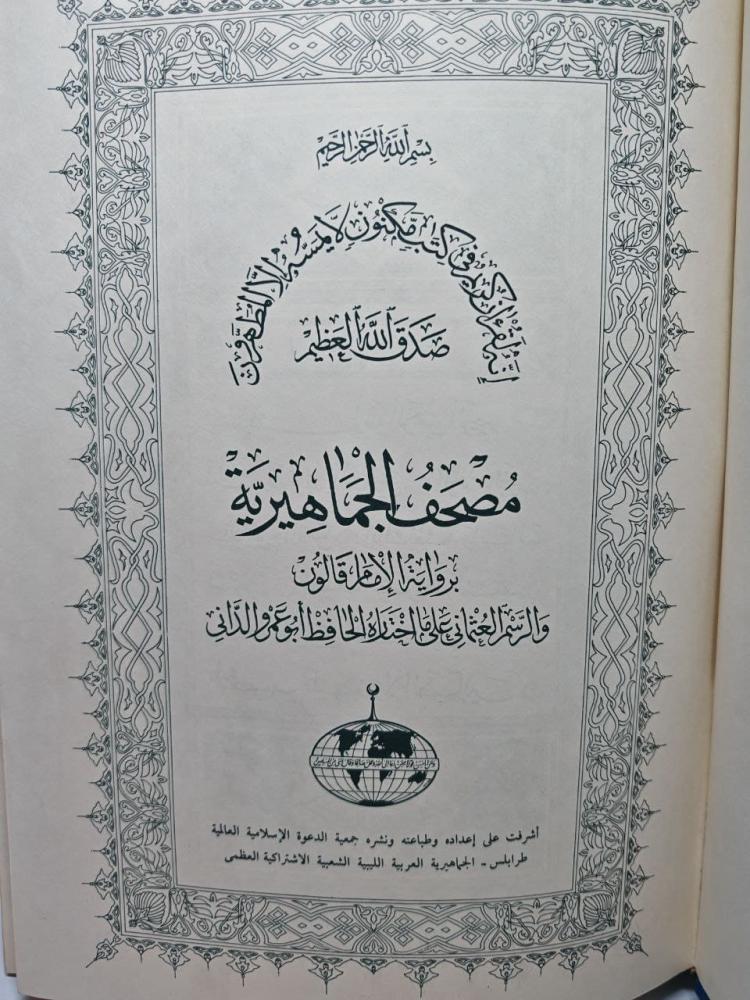 بِسْمِ اللَّهِ الرَّحْمَٰنِ الرَّحِيمِ
إِنَّهُ لَقُرْءَانٌ كَرِيمٌ فِي كِتَٰبٍ مَّكْنُونٍ لَّا يَمَسُّهُ إِلَّا الْمُطَهَّرُونَ
صَدَقَ اللَّهُ الْعَظِيمُ
مُصْحَفُ الْجَمَاهِيرِيَّةِ
بِرِوَايَةِ الْإِمَامِ قَالُونَ
وَالرَّسْمِ الْعُثْمَانِي عَلَى مَا اخْتَارَهُ الْحَافِظُ أَبُو عَمْرٍو الدَّانِي
أشرفت على إعداده وطباعته ونشره جمعية الدعوة الإسلامية العالمية
طرابلس - الجماهيرية العربية الليبية الشعبية الاشتراكية العظمى